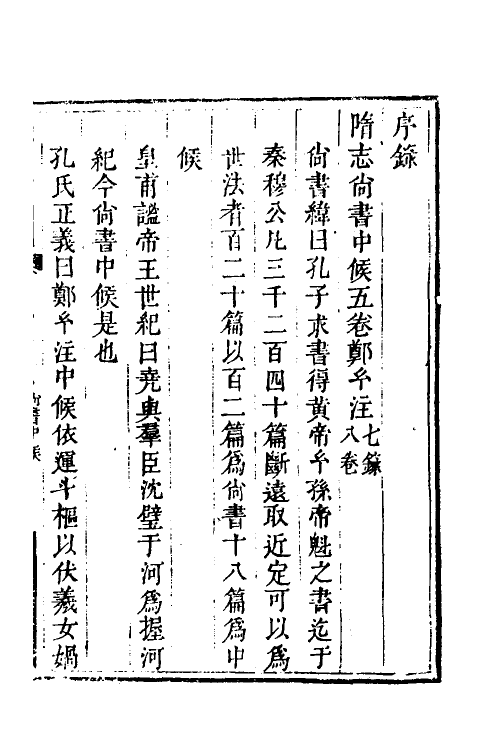 序錄
隋志尙書中候五卷鄭𤣥注七錄八卷
尙書緯曰孔子求書得黃帝𤣥孫帝魁之書迄于
秦穆公凡三千二百四十篇斷遠取近定可以爲
世法者百二十篇以百二篇爲尙書十八篇爲中
候
皇甫謐帝王世紀曰堯與羣臣沈璧于河爲握河
紀今尙書中候是也
孔氏正義曰鄭𤣥注中候依運斗樞以伏羲女媧
尙書中候